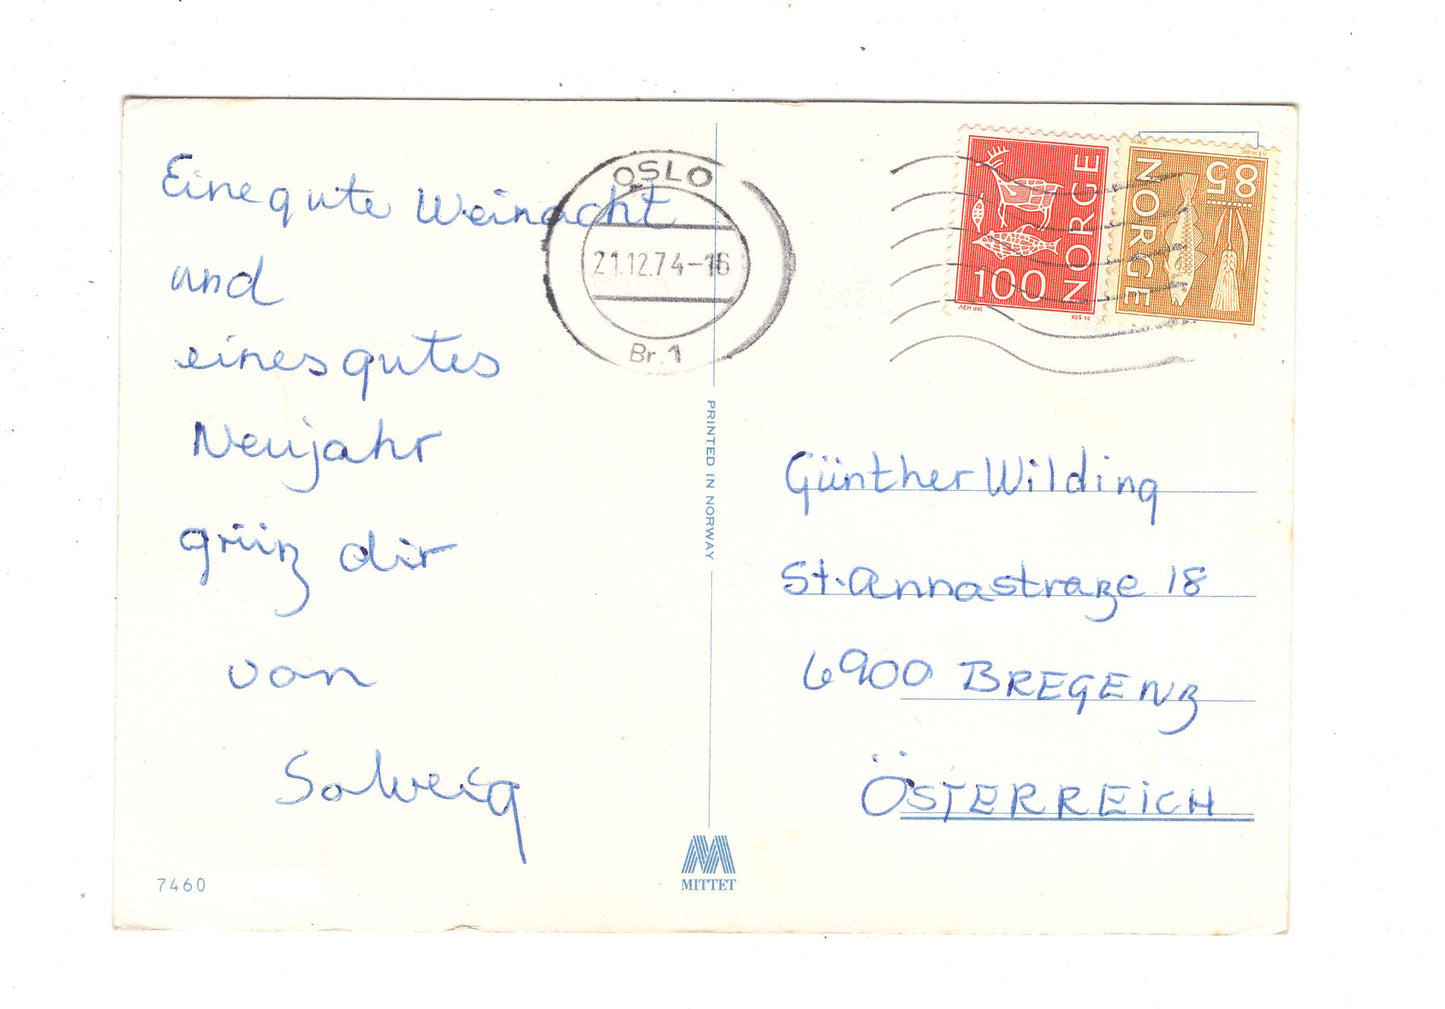 Eine gute Weinacht
und
eines gutes
Neujahr
grüz dir
von
Solveig
7460
OSLO
21.12.74-16
Br. 1
PRINTED IN NORWAY
MITTET
NORGE
100
NORGE
85
Günther Wilding
St. Annastraze 18
6900 BREGENZ
ÖSTERREICH